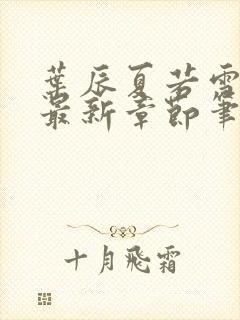 葉辰夏若雪
最新章節筆
十月飛霜